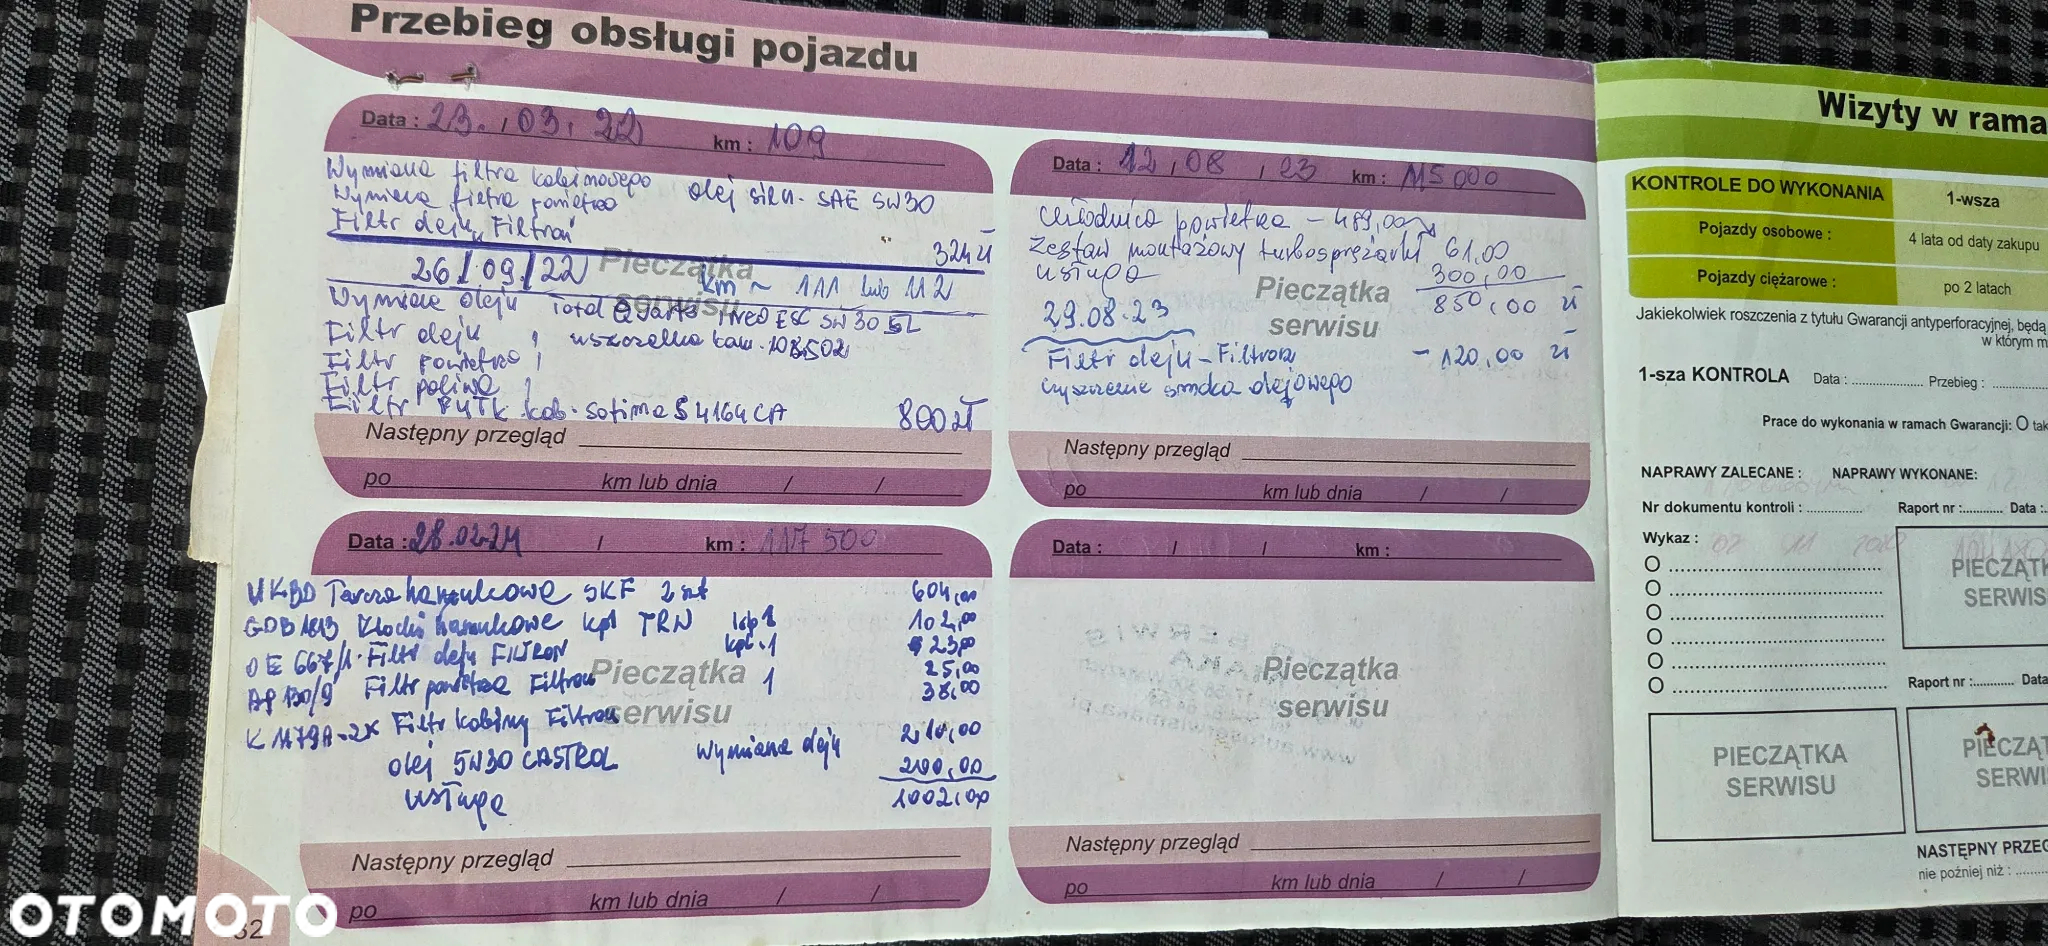 Przebieg obsługi pojazdu
Data : 23. / 03. 22 km : 109
Wymiana filtra kabinowego olej siln. SAE 5W30
Wymiana filtra powietrza
Filtr oleju „Filtron”
324 zł
26/09/22 km ~ 111 lub 112
Pieczątka
serwisu
Wymiana oleju Total Quartz Ineo ESC 5W30 5L
Filtr oleju , uszczelka kor. 108.502
Filtr powietrza ,
Filtr paliwa ,
Filtr PYŁK kab. Sofima S4164CA 800 zł
Następny przegląd
po km lub dnia / /
Data : 12 , 08 , 23 km : 115 000
Chłodnica powietrza - 489,00
Zestaw montażowy turbosprężarki 61,00
usługa 300,00
850,00 zł
Pieczątka
serwisu
29.08.23
Filtr oleju - Filtron - 120,00 zł
czyszczenie smoka olejowego
Następny przegląd
po km lub dnia / /
Data : 28.02.24 / km : 117 500
Tarcza hamulcowe SKF 2 szt 604,00
GDB1813 Klocki hamulcowe kpl TRN kpl 1 102,00
OE 667/1 . Filtr oleju FILTRON kpl. 1 23,00
AP 130/9 Filtr powietrza Filtron 1 25,00
38,00
K 1179A-2x Filtr kabiny Filtron
Pieczątka
serwisu
olej 5W30 CASTROL wymiana oleju 210,00
usługa 200,00
1002,00
Następny przegląd
po km lub dnia / /
Data : / / km :
Pieczątka
serwisu
Następny przegląd
po km lub dnia / /
32
Wizyty w rama
KONTROLE DO WYKONANIA 1-wsza
Pojazdy osobowe : 4 lata od daty zakupu
Pojazdy ciężarowe : po 2 latach
Jakiekolwiek roszczenia z tytułu Gwarancji antyperforacyjnej, będą
w którym m
1-sza KONTROLA Data : Przebieg :
Prace do wykonania w ramach Gwarancji: O tak
NAPRAWY ZALECANE : NAPRAWY WYKONANE:
Nr dokumentu kontroli : Raport nr : Data :
Wykaz :
PIECZĄTK
SERWIS
Raport nr : Data
PIECZĄTKA
SERWISU
PIECZĄT
SERWI
NASTĘPNY PRZEG
nie pożniej niż :
OTOMOTO